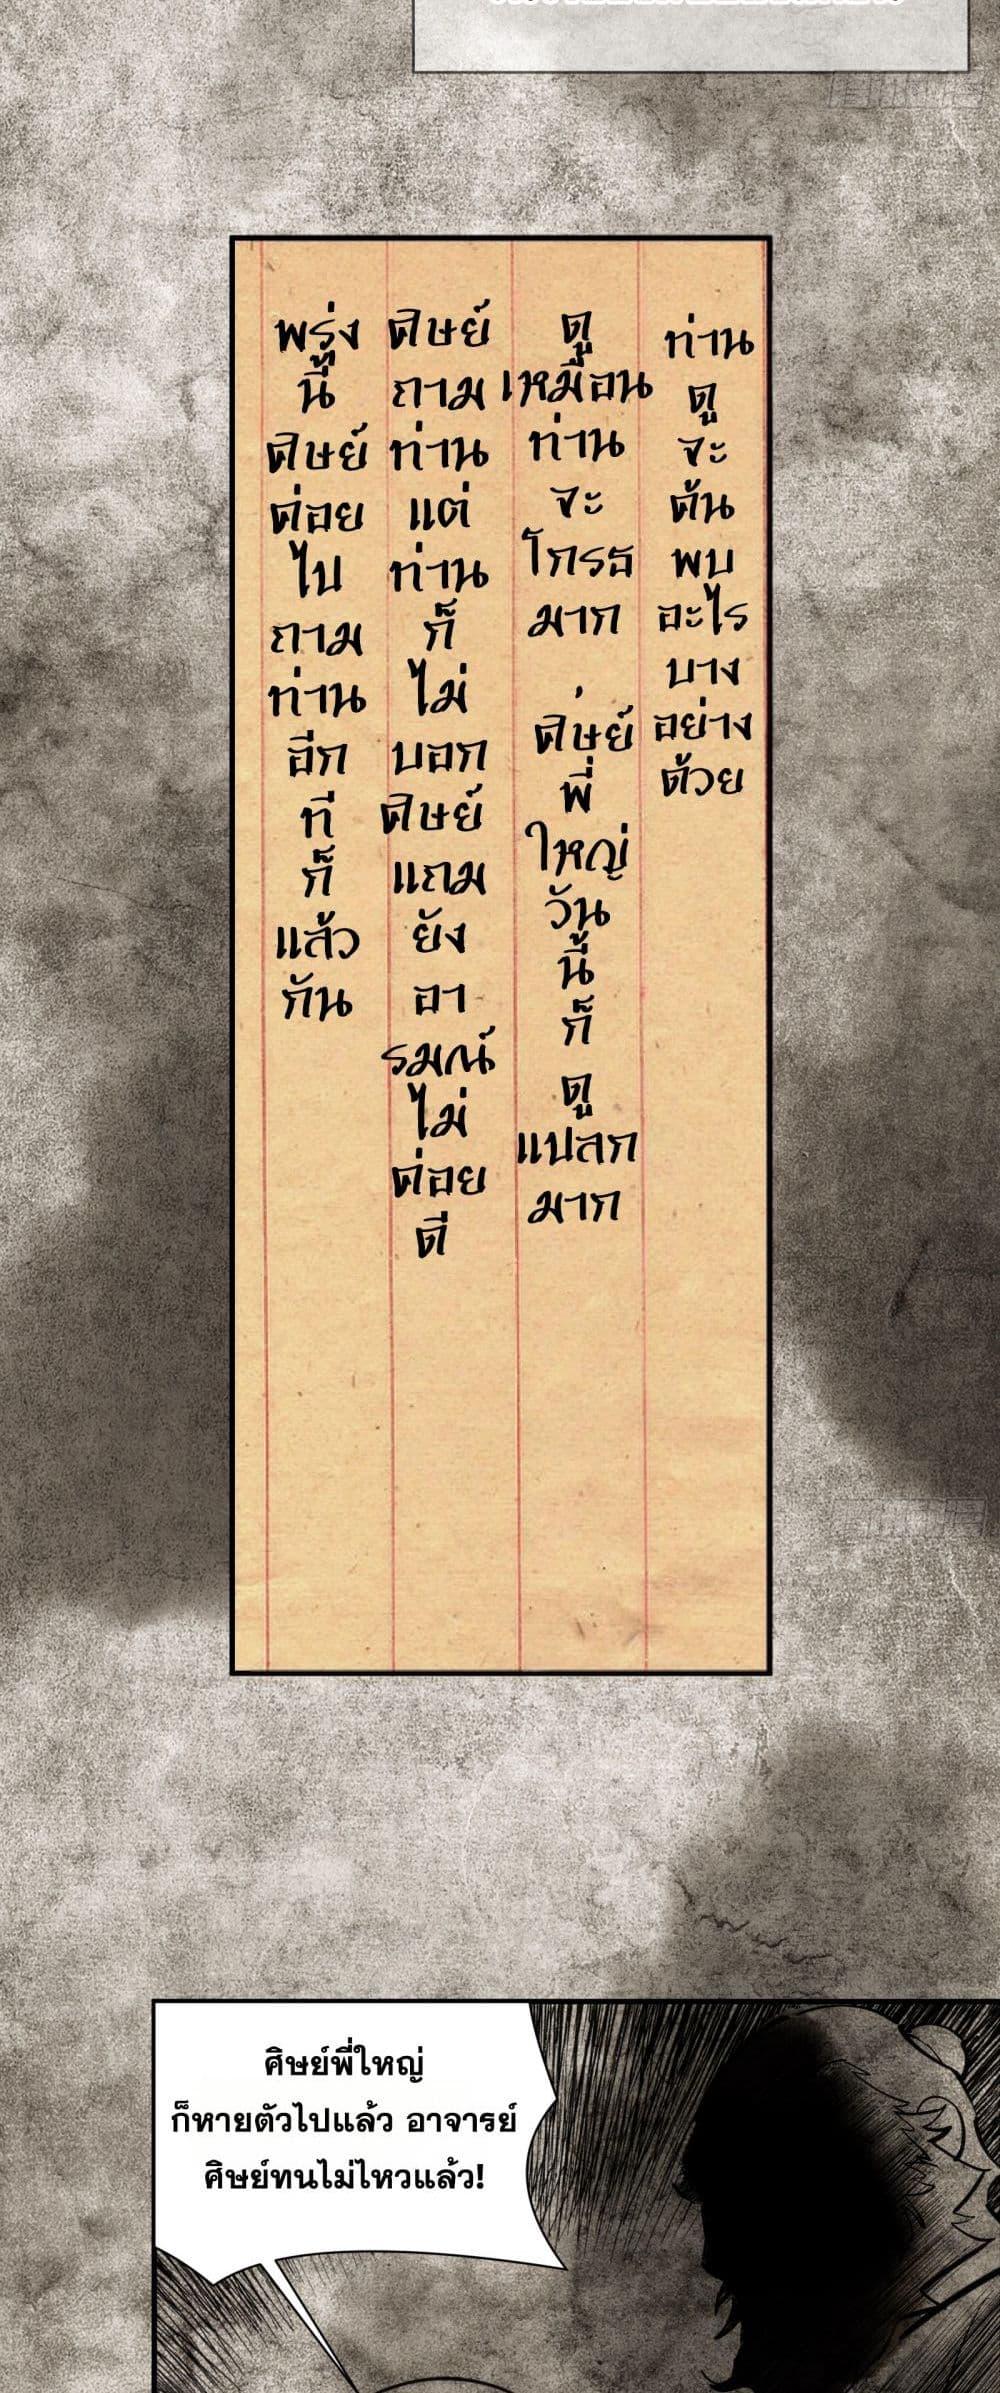 ท่านดูจะค้นพบอะไรบางอย่างด้วย
ดูเหมือนท่านจะโกรธมาก, ศิษย์พี่ใหญ่วันนี้ก็ดูแปลกมาก
ศิษย์ถามท่านแต่ท่านก็ไม่บอกศิษย์แถมยังอารมณ์ไม่ค่อยดี
พรุ่งนี้ศิษย์ค่อยไปถามท่านอีกทีก็แล้วกัน
ศิษย์พี่ใหญ่
ก็หายตัวไปแล้ว อาจารย์
ศิษย์ทนไม่ไหวแล้ว!